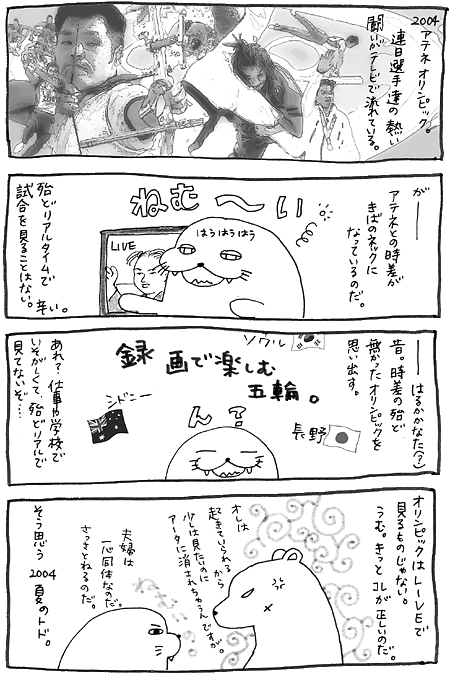 2004
アテネ オリンピック。
連日選手達の熱い
闘いがテレビで流れている。
が――
アテネとの時差が
きばのネックに
なっているのだ。
ねむ〜い
はうはうはう
LIVE
殆どリアルタイムで
試合を見ることはない。
辛い。
――はるかかなた(?)
昔。時差の殆ど
無かったオリンピックを
思い出す。
ソウル
録画で楽しむ
五輪。
長野
シドニー
ん?
あれ?仕事や学校で
いそがしくて、殆どリアルで
見てないぞ…
オリンピックはLIVEで
見るものじゃない。
うむ。きっとコレが正しいのだ。
オレは
起きていられるから
少しは見たいのに
アータに消されちゃうんですが。
夫婦は
一心同体なのだ。
さっさとねるのだ。
そう思う
2004
夏のトド。